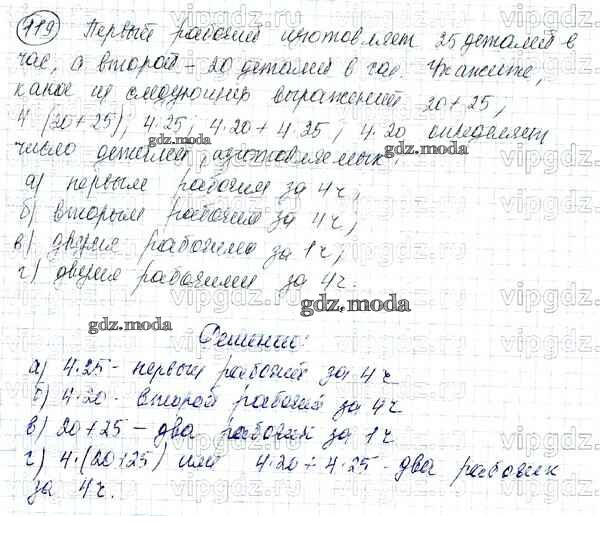 119) Первый рабочий изготовляет 25 деталей в
час, а второй - 20 деталей в час. Укажите,
какое из следующих выражений 20+25,
4·(20+25), 4·25, 4·20+4·25, 4·20 определяет
число деталей, изготовляемых:
а) первым рабочим за 4ч,
б) вторым рабочим за 4ч,
в) двумя рабочими за 1ч,
г) двумя рабочими за 4ч.
Решение:
а) 4·25 - первый рабочий за 4ч
б) 4·20 - второй рабочий за 4ч
в) 20+25 - два рабочих за 1ч
г) 4·(20+25) или 4·20+4·25 - два рабочих
за 4ч.
gdz.moda
gdz.moda
gdz.moda
gdz.moda
vipgdz.com